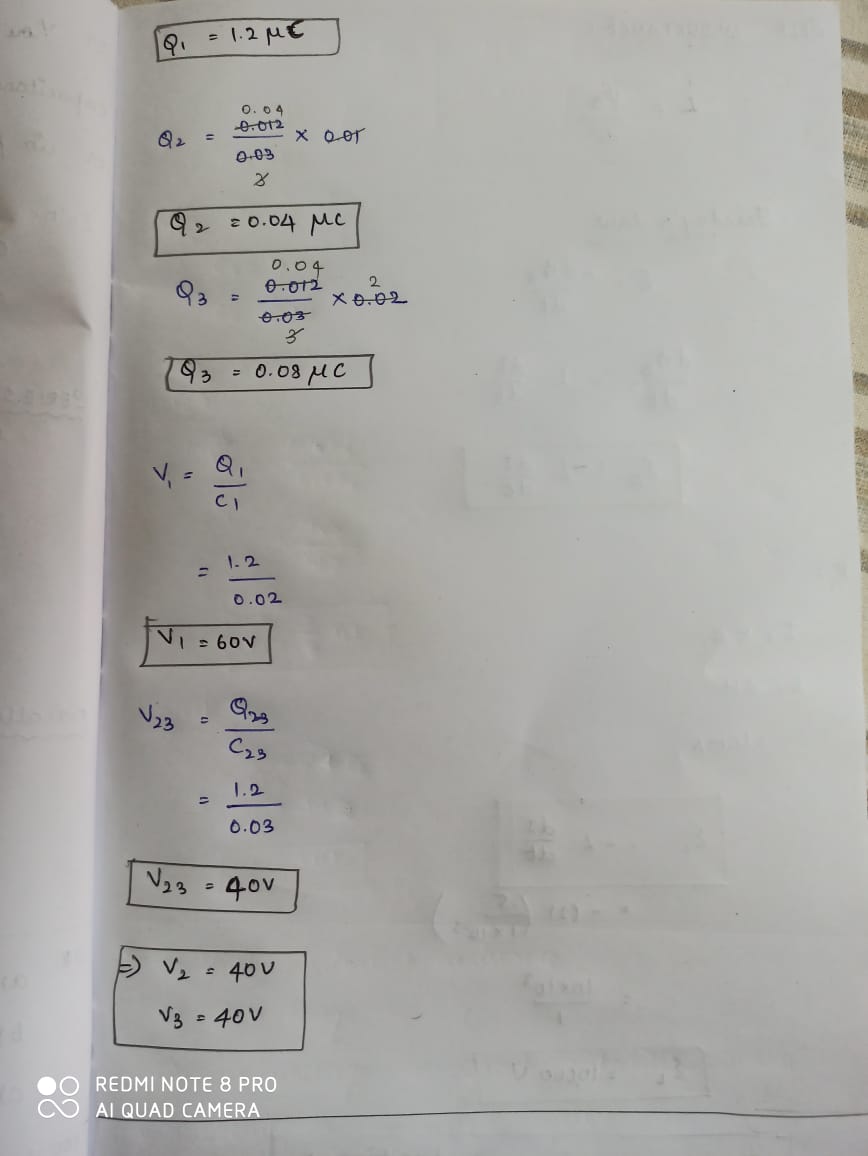 Q1 = 1.2 μC
0.04
Q2 = 0.012 / 0.03 × 0.01
3
Q2 = 0.04 μC
0.04 2
Q3 = 0.012 / 0.03 × 0.02
3
Q3 = 0.08 μC
V1 = Q1 / C1
= 1.2 / 0.02
V1 = 60V
V23 = Q23 / C23
= 1.2 / 0.03
V23 = 40V
=> V2 = 40V
V3 = 40V
REDMI NOTE 8 PRO
AI QUAD CAMERA